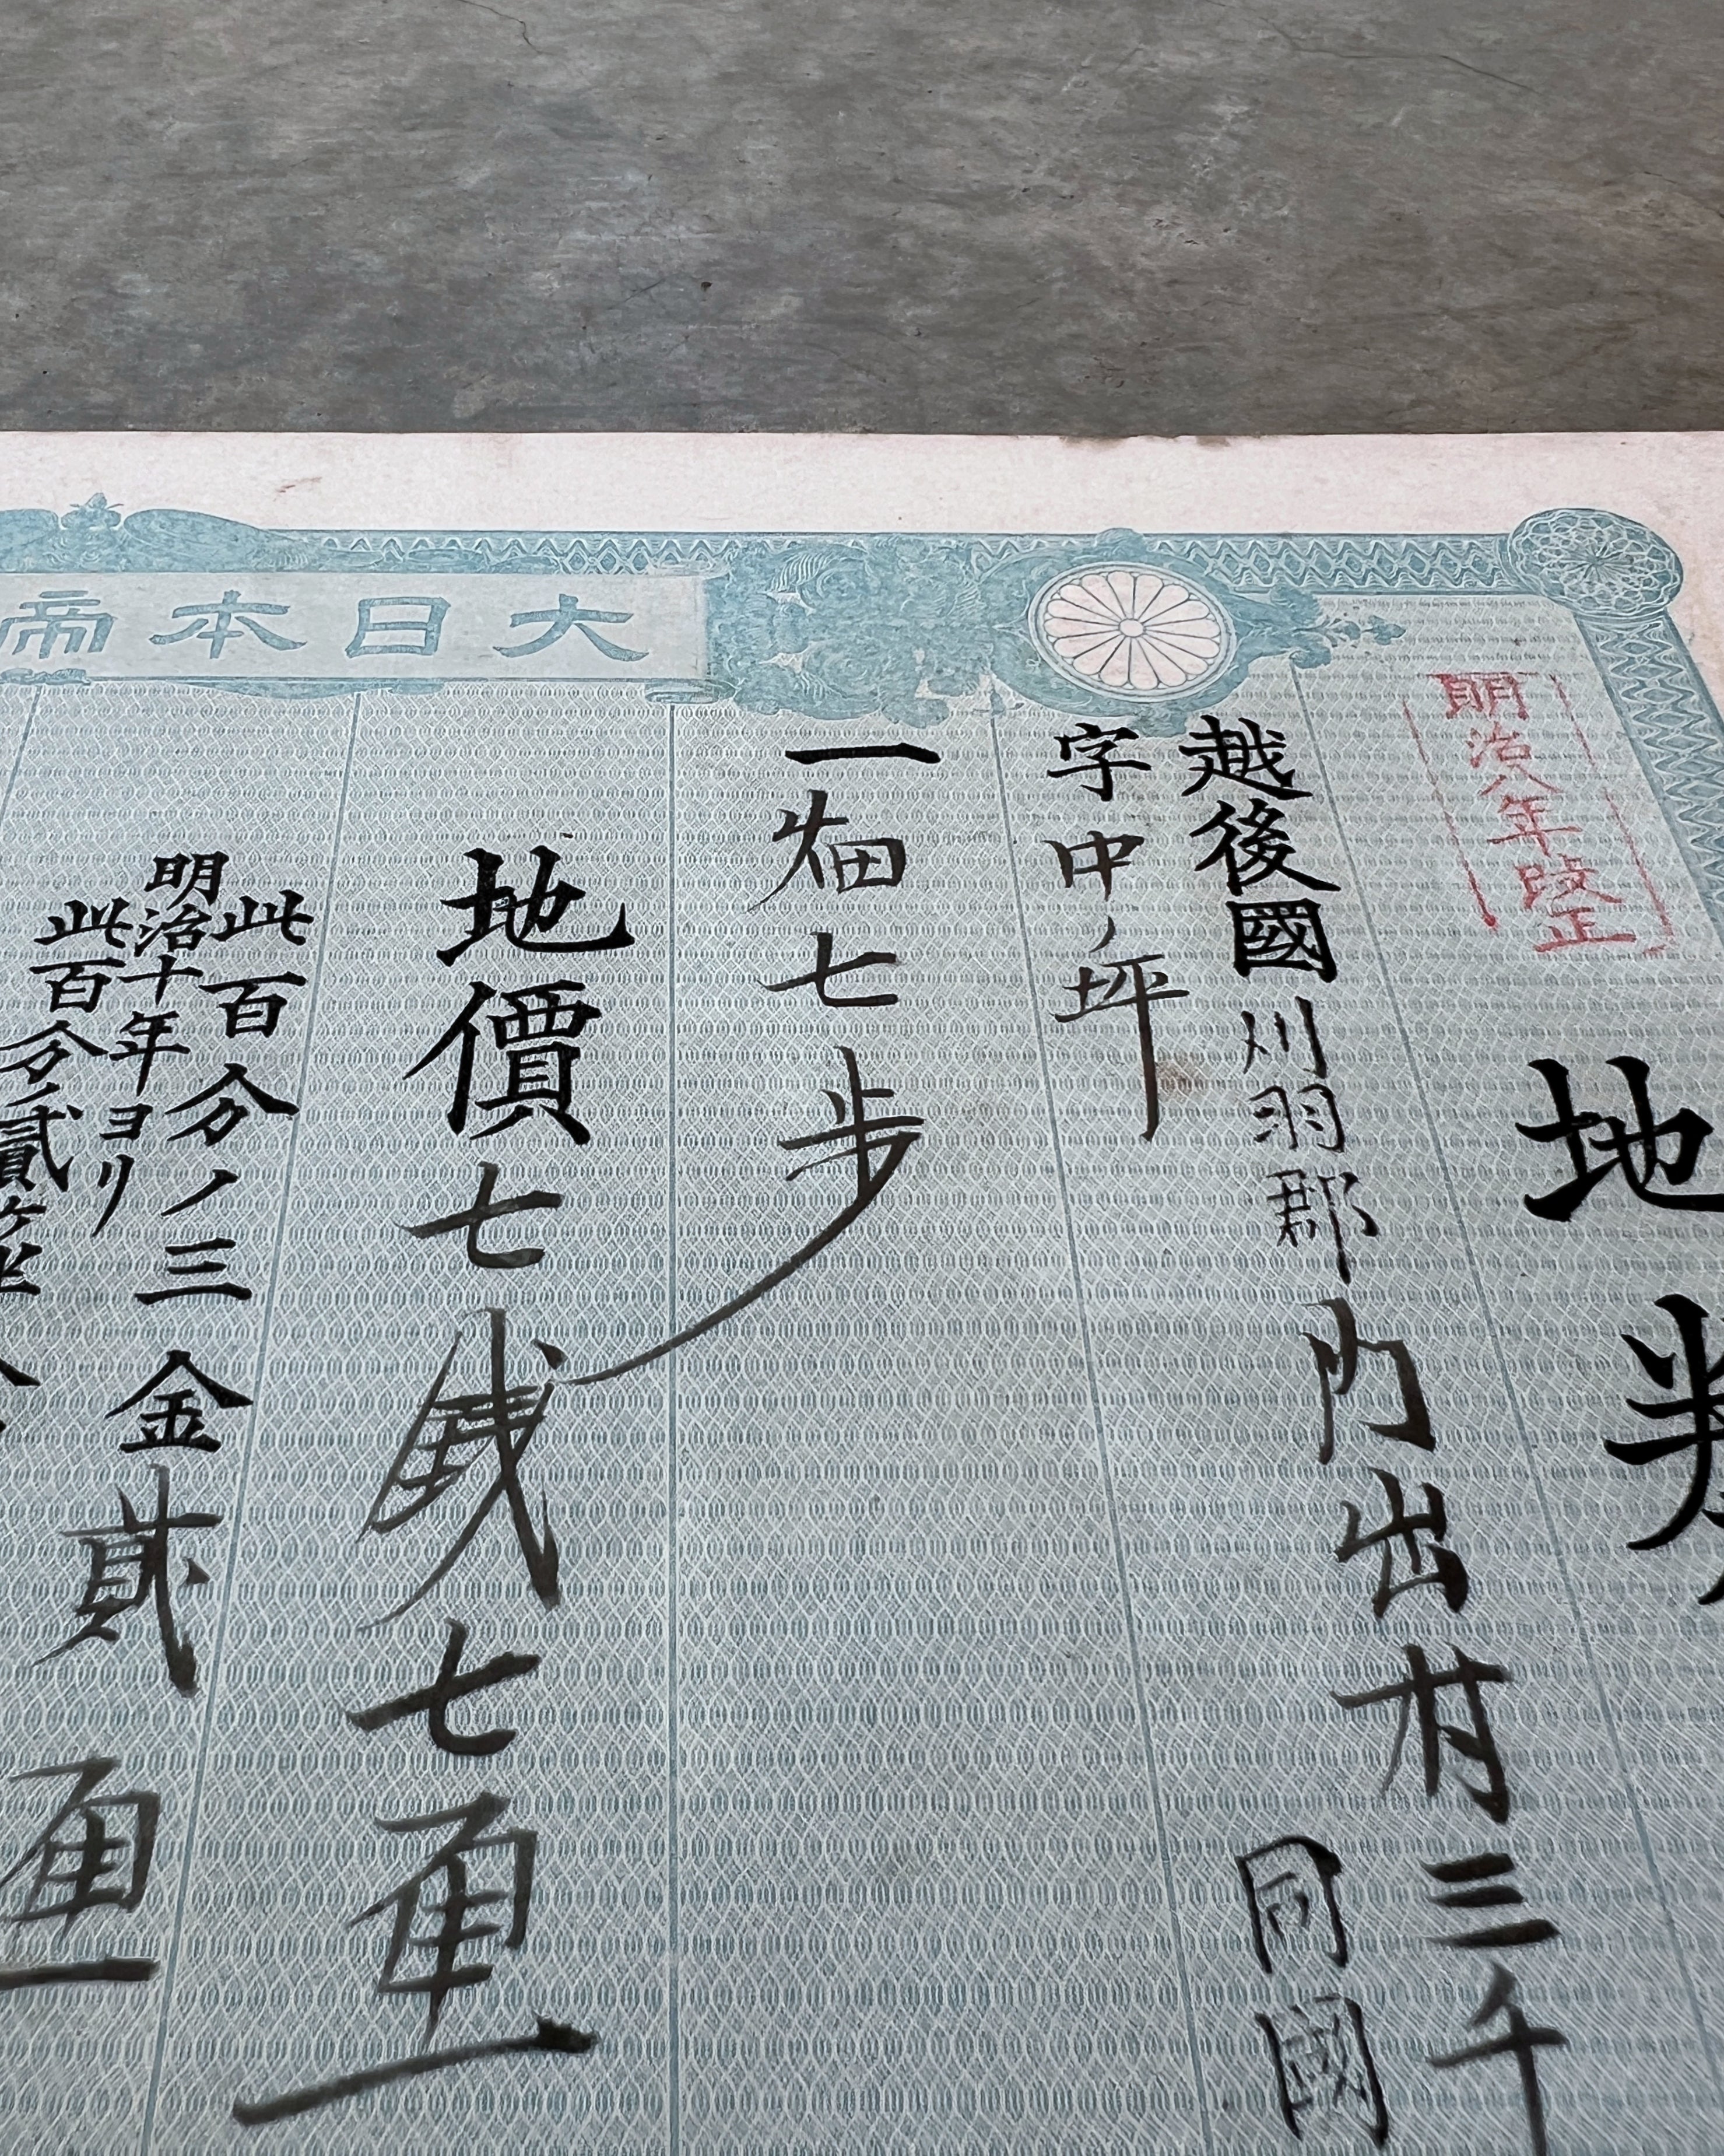 大日本帝
明治八年改正
地
越後國刈羽郡内出村三千
字中ノ坪
同國
一畑七歩
地價七銭七厘
此百分ノ三金貳厘
明治十年ヨリ
此百分ノ貳ヶ半